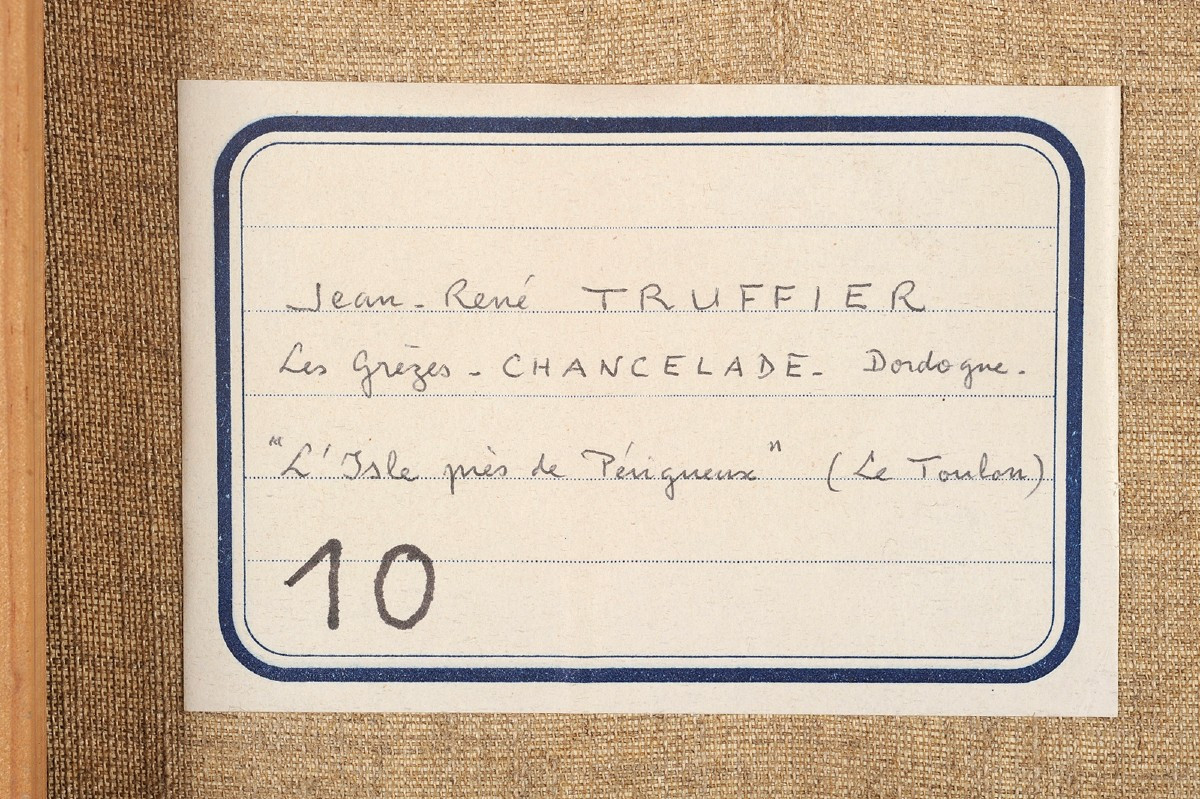 Jean-René TRUFFIER
Les Grèzes - CHANCELADE - Dordogne.
"L'Isle près de Périgueux" (Le Toulon)
10